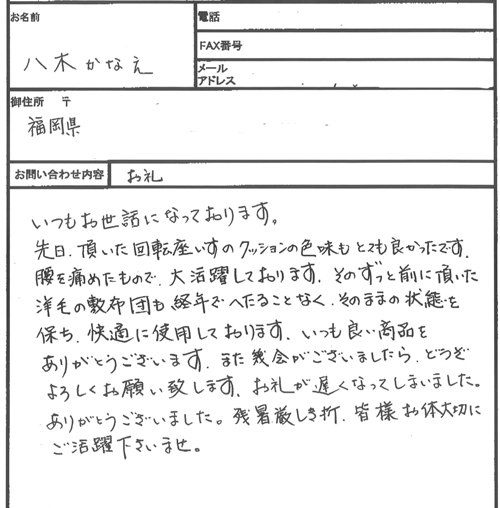 お名前
八木かなえ
電話
FAX番号
メール
アドレス
御住所 〒
福岡県
お問い合わせ内容 お礼
いつもお世話になっております。
先日、頂いた回転座いすのクッションの色味もとても良かったです。
腰を痛めたもので、大活躍しております。そのずっと前に頂いた
洋毛の敷布団も経年でへたることなく、そのままの状態を
保ち、快適に使用しております。いつも良い商品を
ありがとうございます。また幾会がございましたら、どうぞ
よろしくお願い致します。お礼が遅くなってしまいました。
ありがとうございました。残暑厳しき折、皆様お体大切に
ご活躍下さいませ。